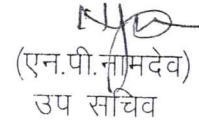 (एन.पी.नामदेव)
उप सचिव